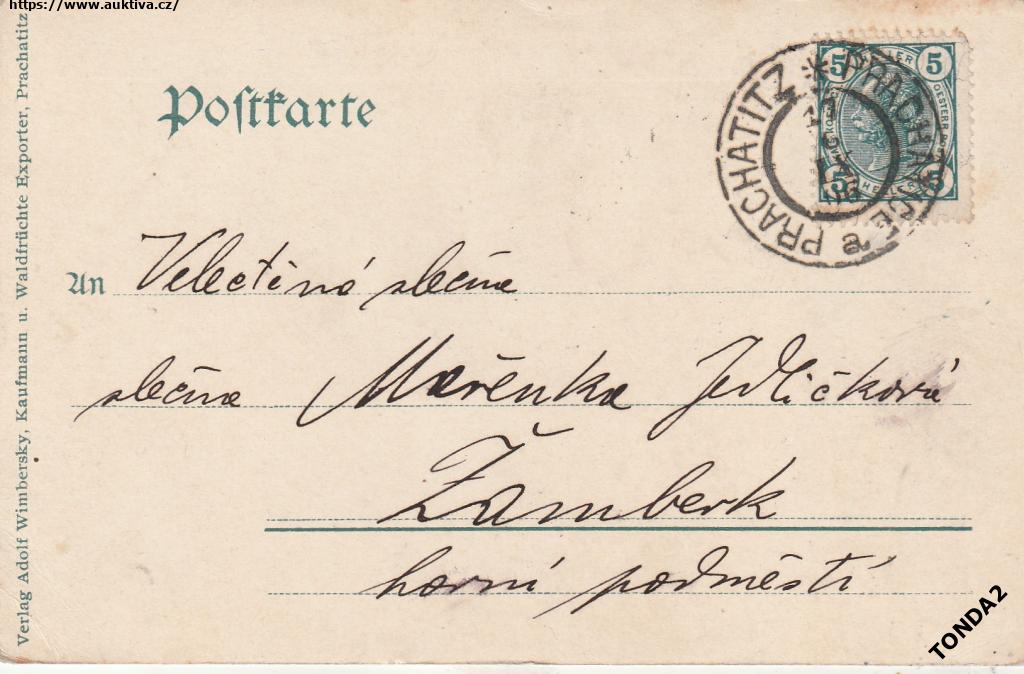 https://www.auktiva.cz/
Postkarte
5 HELLER 5
PRACHATITZ * PRACHATICE a
IX
5 HELLER 5
An Velectěná slečna
slečna Mařenka Jedličková
Žamberk
horní podměstí
Verlag Adolf Wimbersky, Kaufmann u. Waldfrüchte Exporter, Prachatitz
TONDA2